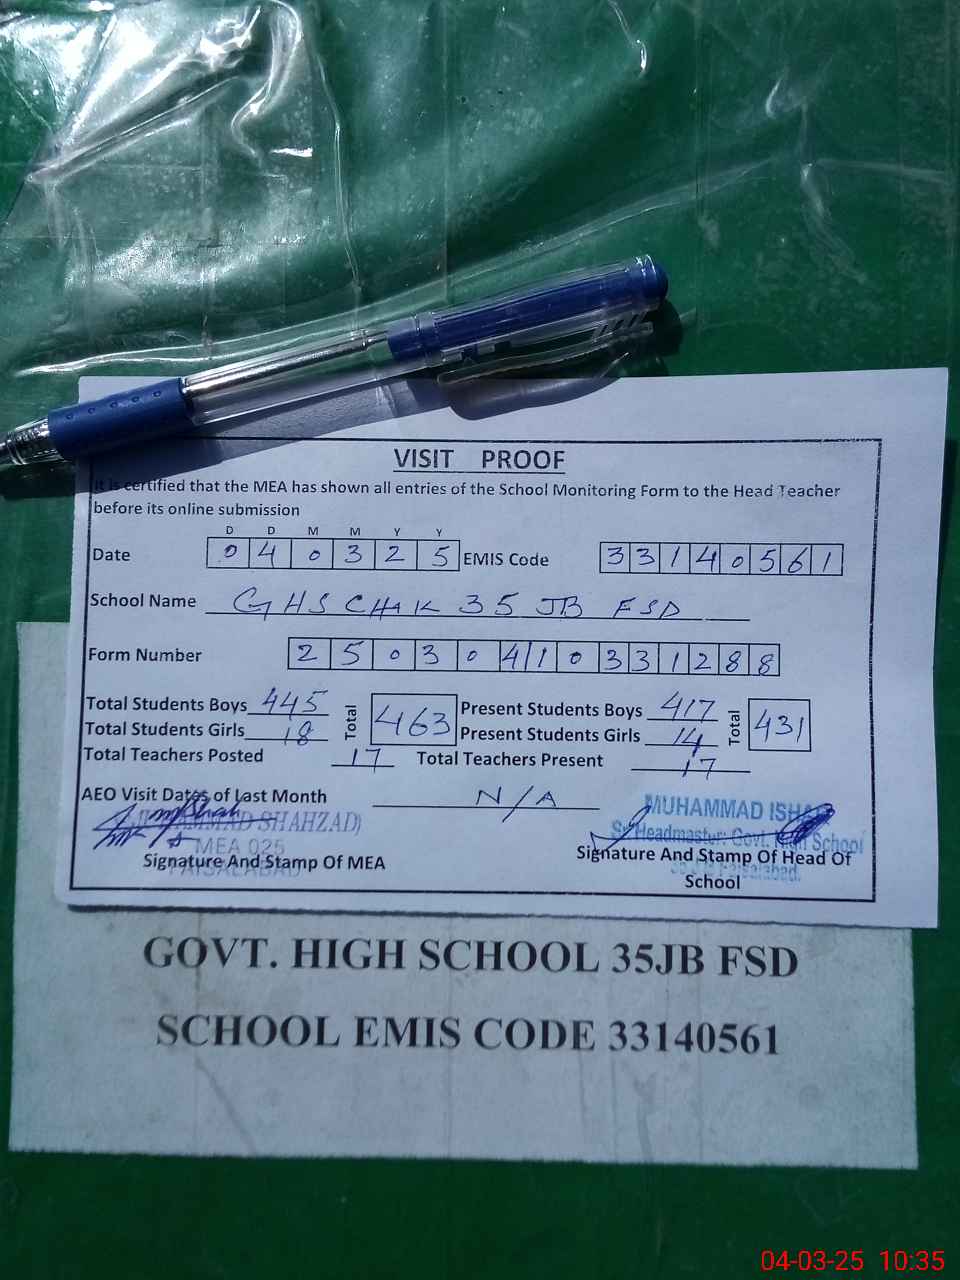 VISIT PROOF
It is certified that the MEA has shown all entries of the School Monitoring Form to the Head Teacher
before its online submission
D D M M Y Y
Date 0 4 0 3 2 5 EMIS Code 3 3 1 4 0 5 6 1
School Name GHS CHAK 35 JB FSD
Form Number 2 5 0 3 0 4 1 0 3 3 1 2 8 8
Total Students Boys 445 Total 463 Present Students Boys 417 Total 431
Total Students Girls 18 Present Students Girls 14
Total Teachers Posted 17 Total Teachers Present 17
AEO Visit Dates of Last Month N/A
MUHAMMAD SHAHZAD) MUHAMMAD ISHAQ
MEA 025 Sr. Headmaster: Govt. High School
FAISALABAD 35 J.B Faisalabad.
Signature And Stamp Of MEA Signature And Stamp Of Head Of
School
GOVT. HIGH SCHOOL 35JB FSD
SCHOOL EMIS CODE 33140561
04-03-25 10:35